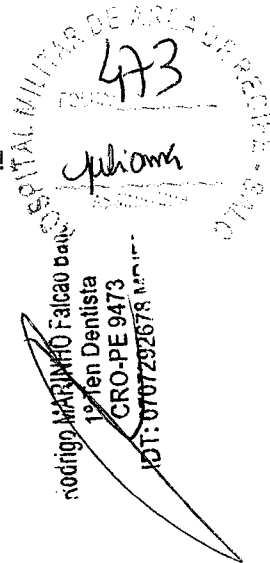 HOSPITAL MILITAR DE ÁREA DE RECIFE - SALC
473
Juliana
Rodrigo MARINHO Falcão
1º Ten Dentista
CRO-PE 9473
IDT: 0707292678